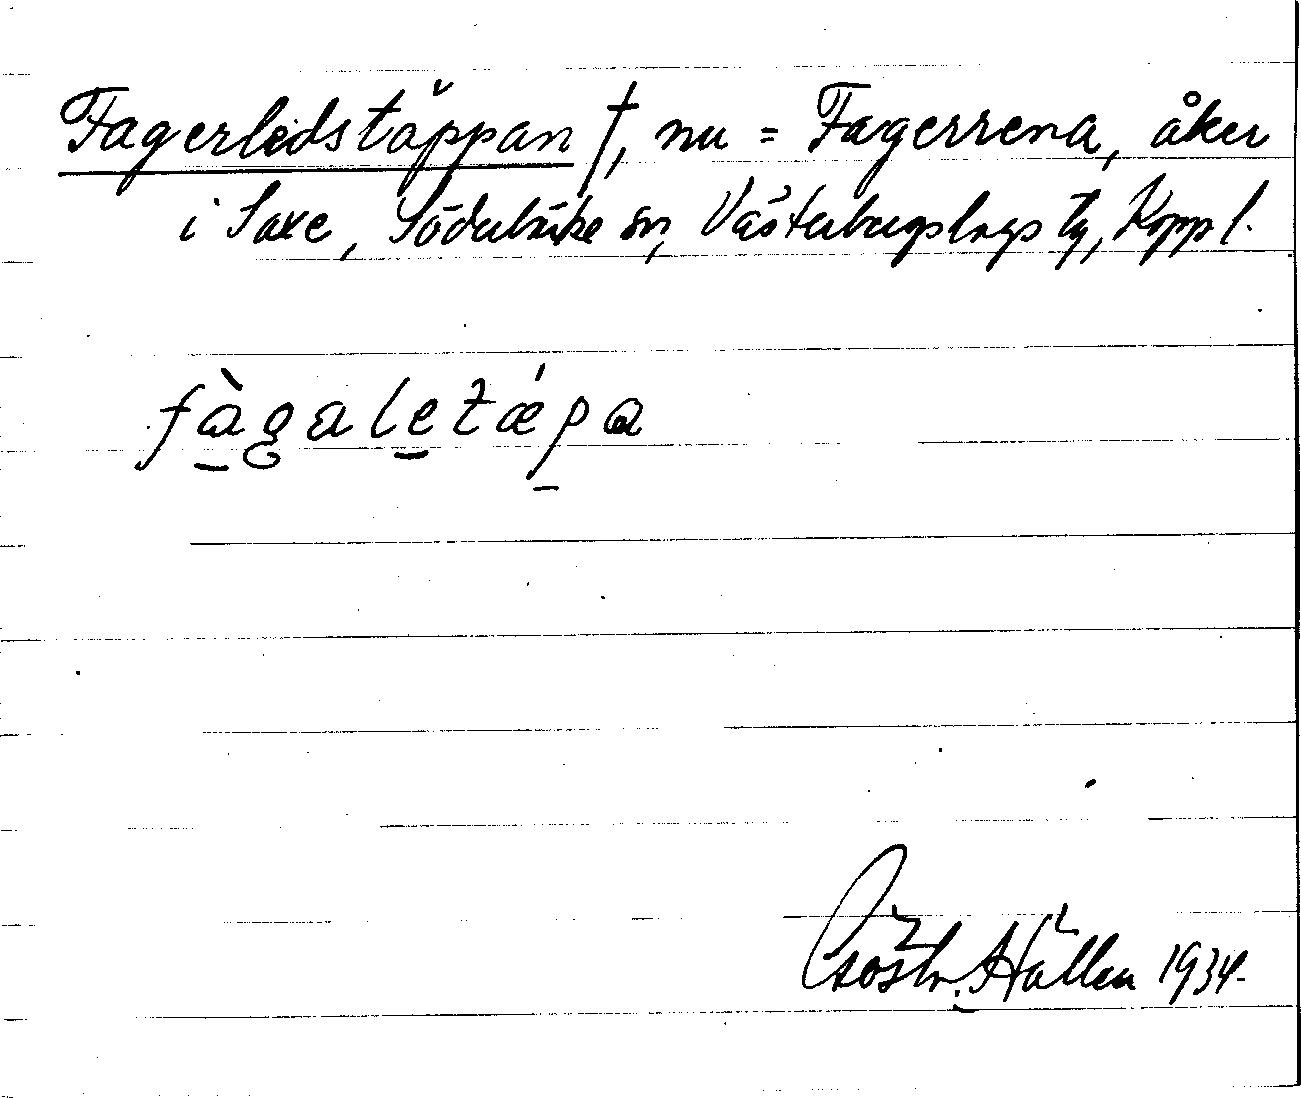 Fagerledstäppan †, nu = Fagerrena, åker
i Saxe, Söderbärke sn, Västerbergslags tg, Kopp l.
fàgaletǽpa
Hällen 1934.